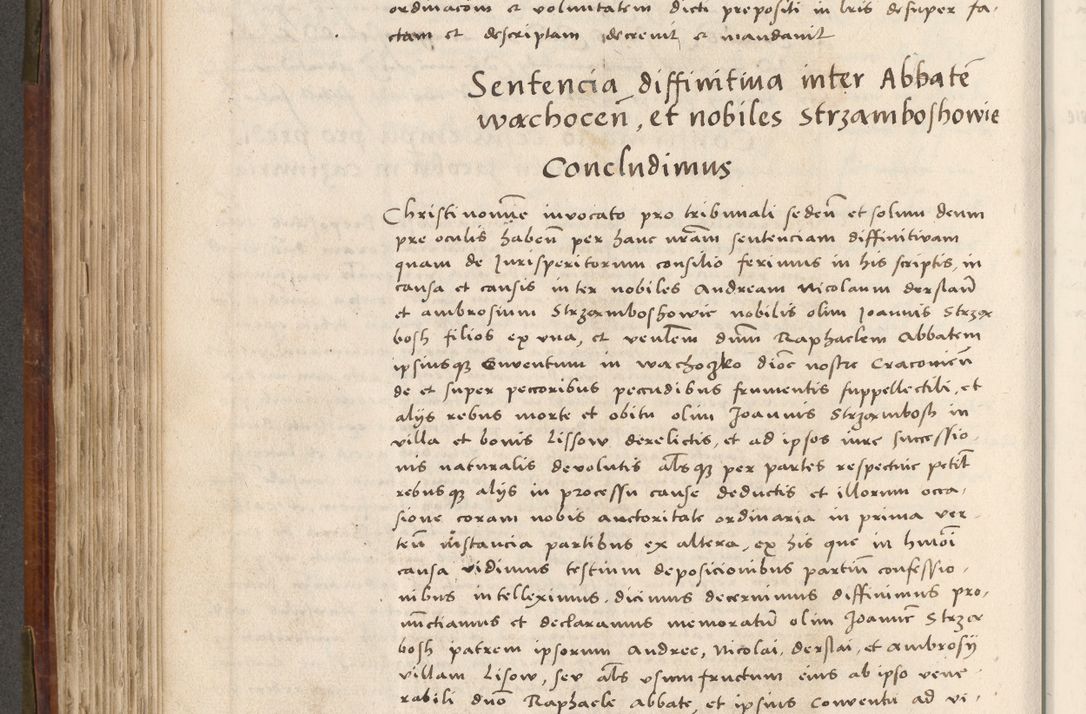 ordinacom et voluntatem dicti prepositi in lris desuper fa,
ctam et descriptam decrevit et mandavit
Sentencia diffinitiva inter Abbatē
wachoceñ, et nobiles Strzamboshowie
Concludimus
Christi nomīe invocato pro tribunali sedeñ et solum deum
pre oculis habeñ per hanc nrām sentenciam diffinitivam
quam de Jurisperitorum consilio ferimus in his scriptis, in
causa et causis inter nobiles Andream Nicolaum derslaū
et ambrosium Strzemboshowie nobilis olim Joannis Strzem
bosh filios ex una, et venlēm dnūm Raphaelem Abbatem
ipsiusqz Conventum in wachoczko dioc̄ nostre Cracovieñ
de et super peccoribus peccudibus frumentis suppellectili, et
alijs rebus morte et obitu olim Joannis Strzembosh in
villa et bonis Lissow derelictis, et ad ipsos iure successio,
nis naturalis devolutis alsqz per partes respective petit̄
rebusqz alijs in processu cause deductis et illorum occa,
sione coram nobis auctoritate ordinaria in prima ver,
teñ instancia partibus ex altera, ex his que in hmōi
causa vidimus testium deposicionibus partiū confessio,
nibus intelleximus, dicimus decernimus diffinimus pro,
nūctiamus et declaramus memoratū olim Joannē Strzem
bosh patrem ipsorum Andree, Nicolai, derslai, et Ambrosij
villam Lisow, seu als usumfructum eius ab ipso vene,
rabili dnō Raphaele Abbate, et ipsius Conventu ad vi,